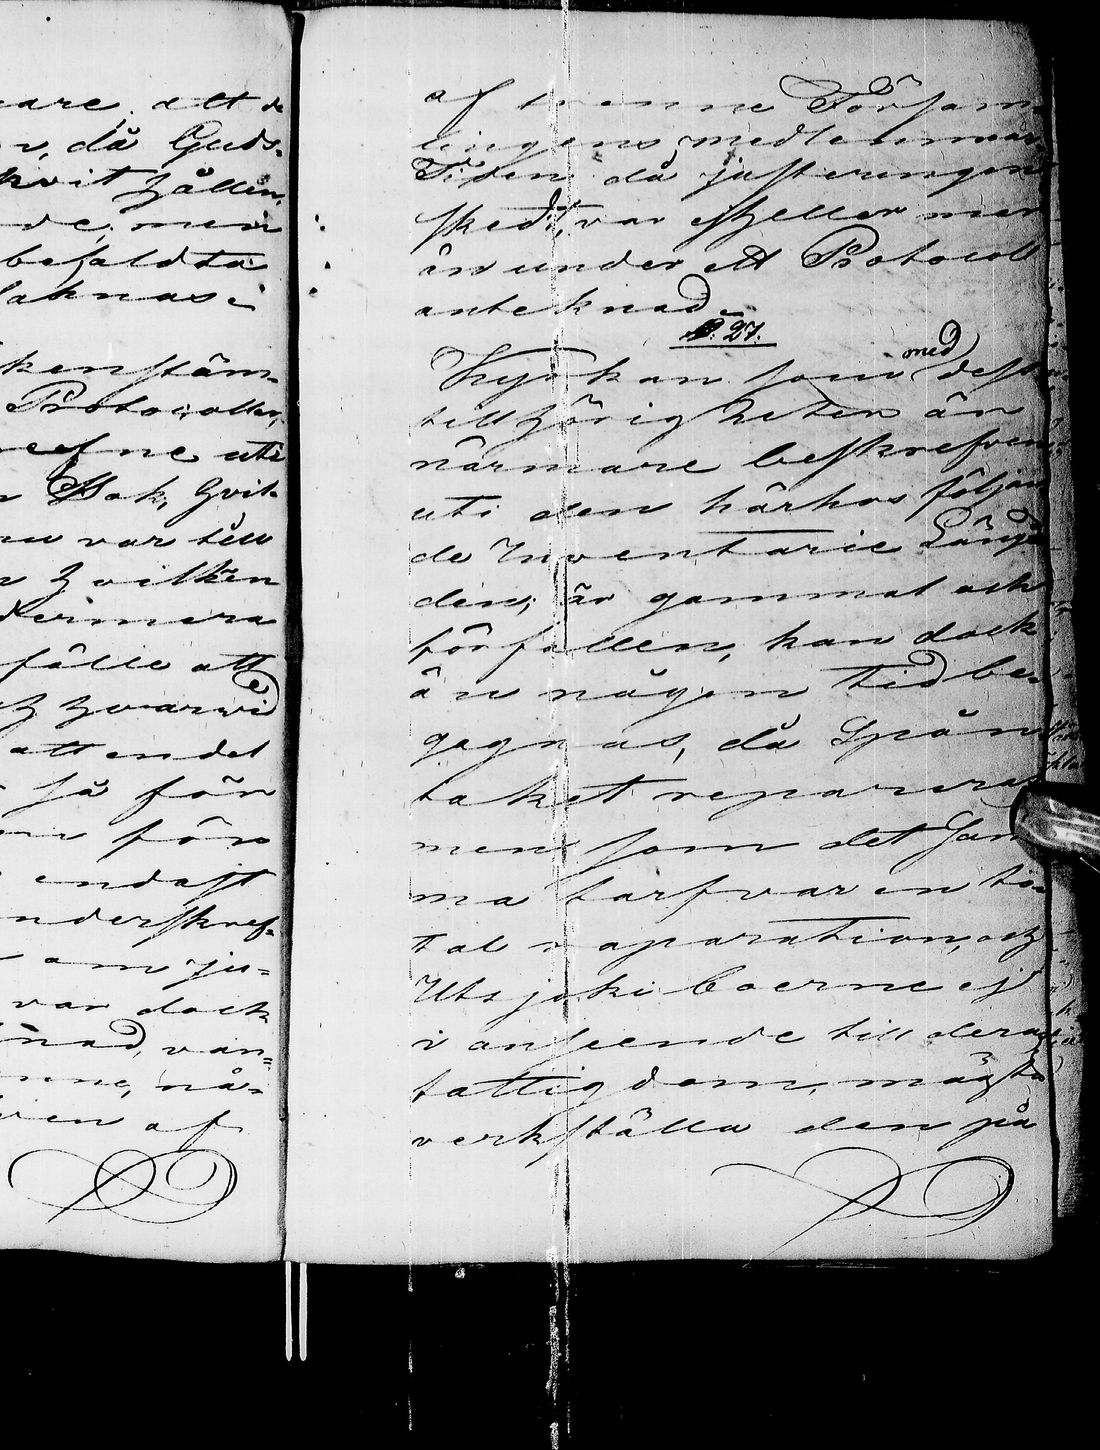 vare, att de
r, då Guds-
kvit hållen,
de, men
befaldta
saknas i
kenstäm-
Protocoller,
neofne uti
Bok, hvil-
nu var till
r hvilken
dermera
fälle att
ej hvarvid
att endel
så för
före
endast
nderskref-
om ju-
var dock
nad, van-
nne, nå-
ven af
af trenne Försam-
lingens medlemmar.
Tiden då justeringen
skedt, var ej heller mer
än under ett Protocoll
antecknad
§. 27.
Kyrkan som med dess
tillhörigheter är
närmare beskrefven
uti den härhos följan
de Inventarie Läng
den, är gammal och
förfallen, kan dock
än någon tid be-
gagnas, då Spån
taket repareras
men som det sam
ma tarfvar en to-
tal reparation, och
Utsjoki Boerne ej
i anseende till deras
fattigdom, mägta
verkställa den på